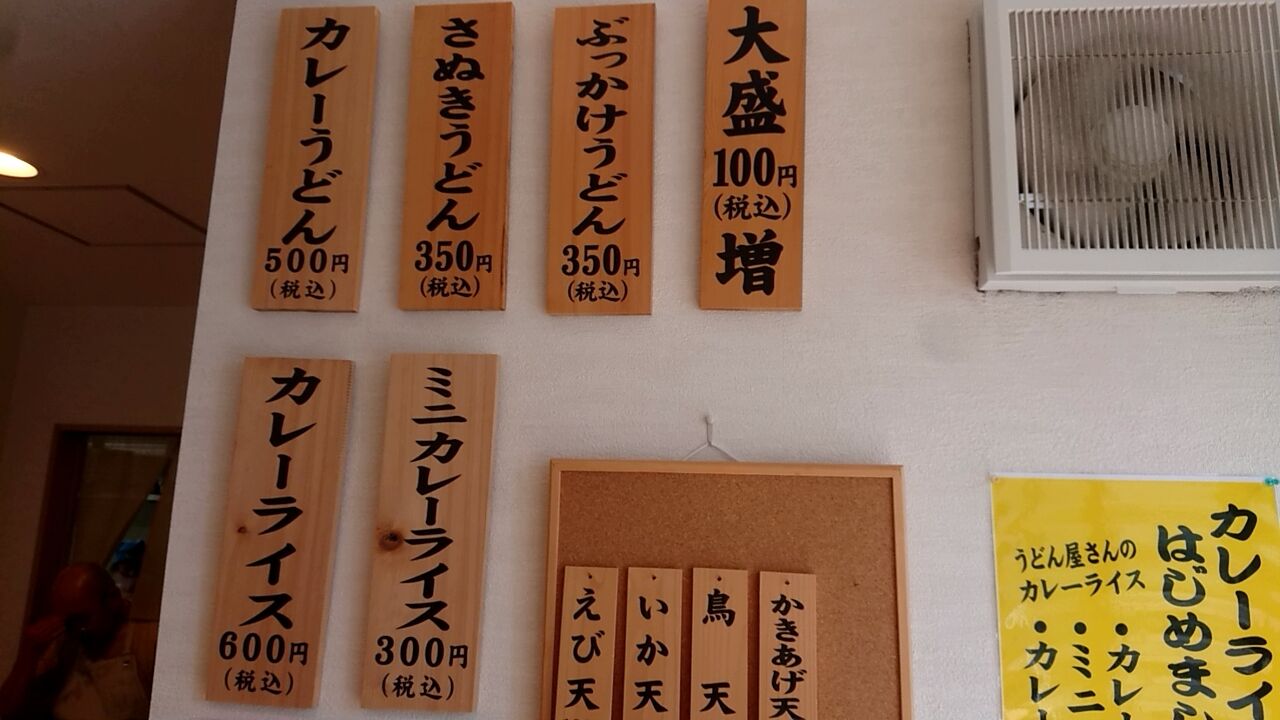 カレーうどん
500円
(税込)
さぬきうどん
350円
(税込)
ぶっかけうどん
350円
(税込)
大盛
100円
(税込)
増
カレーライス
600円
(税込)
ミニカレーライス
300円
(税込)
えび天
いか天
鳥天
かきあげ天
カレーライ
はじめま
うどん屋さんの
カレーライス
・カレ
・ミニ
・カレー